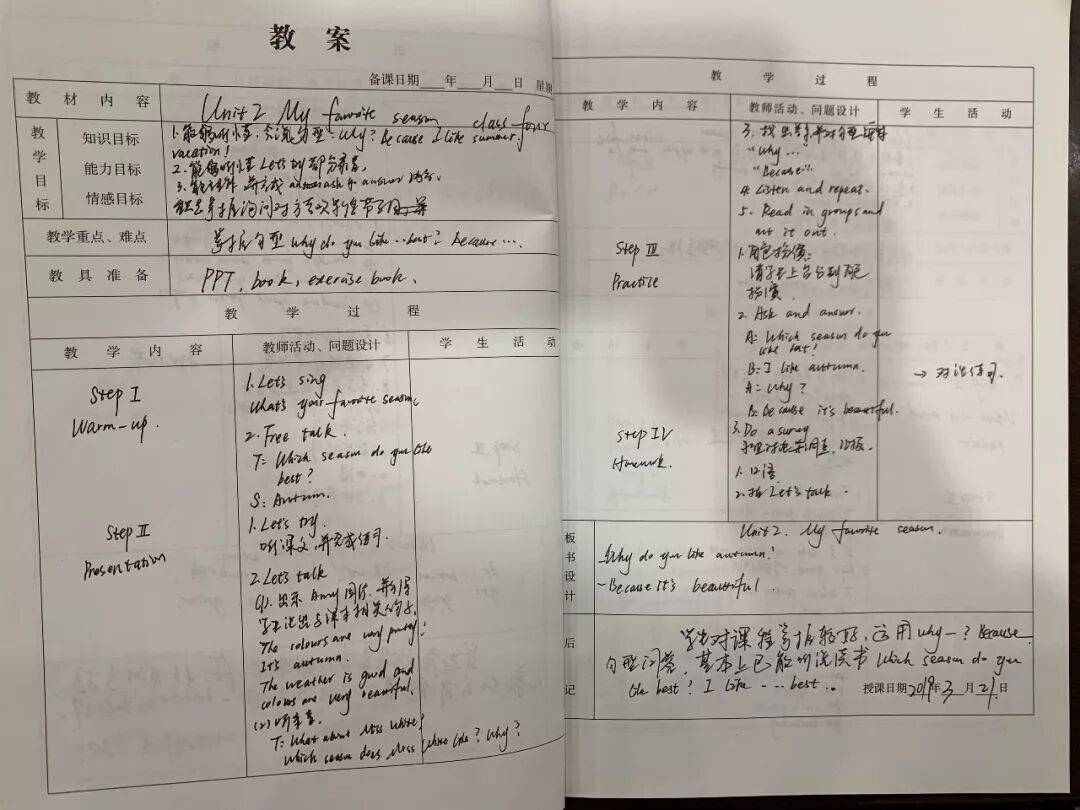 教 案
备课日期 年 月 日 星期
教 材 内 容
Unit 2 My favorite season class four
教学目标
知识目标
能力目标
情感目标
1. 能够听懂、会说句型: Why? Because I like summer
vacation!
2. 能够听懂 Let's try 部分录音。
3. answer
教学重点、难点
掌握句型 Why do you like ... best? Because ....
教 具 准 备
PPT, book, exercise book.
教 学 过 程
教 学 内 容
教师活动、问题设计
学 生 活 动
Step I
Warm-up.
1. Let's sing
What's your favorite season
2. Free talk.
T: Which season do you like
best?
S: Autumn.
Step II
Presentation
1. Let's try.
听课文,并完成练习.
2. Let's talk
(1). 出示 Amy 图片, 并引导
学生说出与课本相关的句子.
The colours are very pretty!
It's autumn.
The weather is good and
colours are very beautiful.
(2) 听录音.
T: What about Miss White?
Which season does Miss White like? Why?
教 学 过 程
教 学 内 容
教师活动、问题设计
学 生 活 动
3. 找出
"Why ...
"Because".
4. Listen and repeat.
5. Read in groups and
act it out.
Step III
Practice
1. 角色扮演:
请学生上台分别角色
扮演.
2. Ask and answer.
A: Which season do you
like best?
B: I like autumn.
A: Why?
B: Because it's beautiful.
→ 对话练习.
3. Do a survey
调查, 汇报.
Step IV
Homework.
1. 口语
2. Let's talk.
板书设计
Unit 2. My favorite season.
-Why do you like autumn?
-Because it's beautiful.
后记
学生对课程掌握较好, 运用 why—? Because
句型问答, 基本上已能听说读书 Which season do you
like best? I like ... best..
授课日期 2019年3月21日